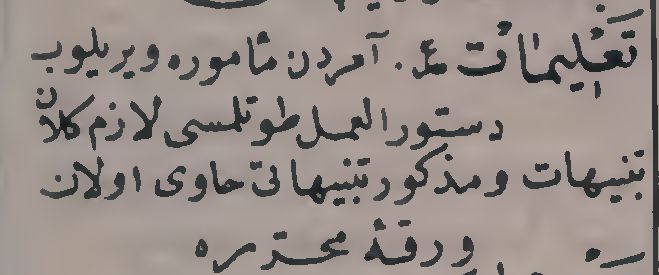 تَعْلِیمَاتْ ع. آمردن مأموره ویریلوب
دستور العمل طوتلمسی لازم کلان
تنبیهات و مذکور تنبیهاتی حاوی اولان
ورقهٔ محترمه